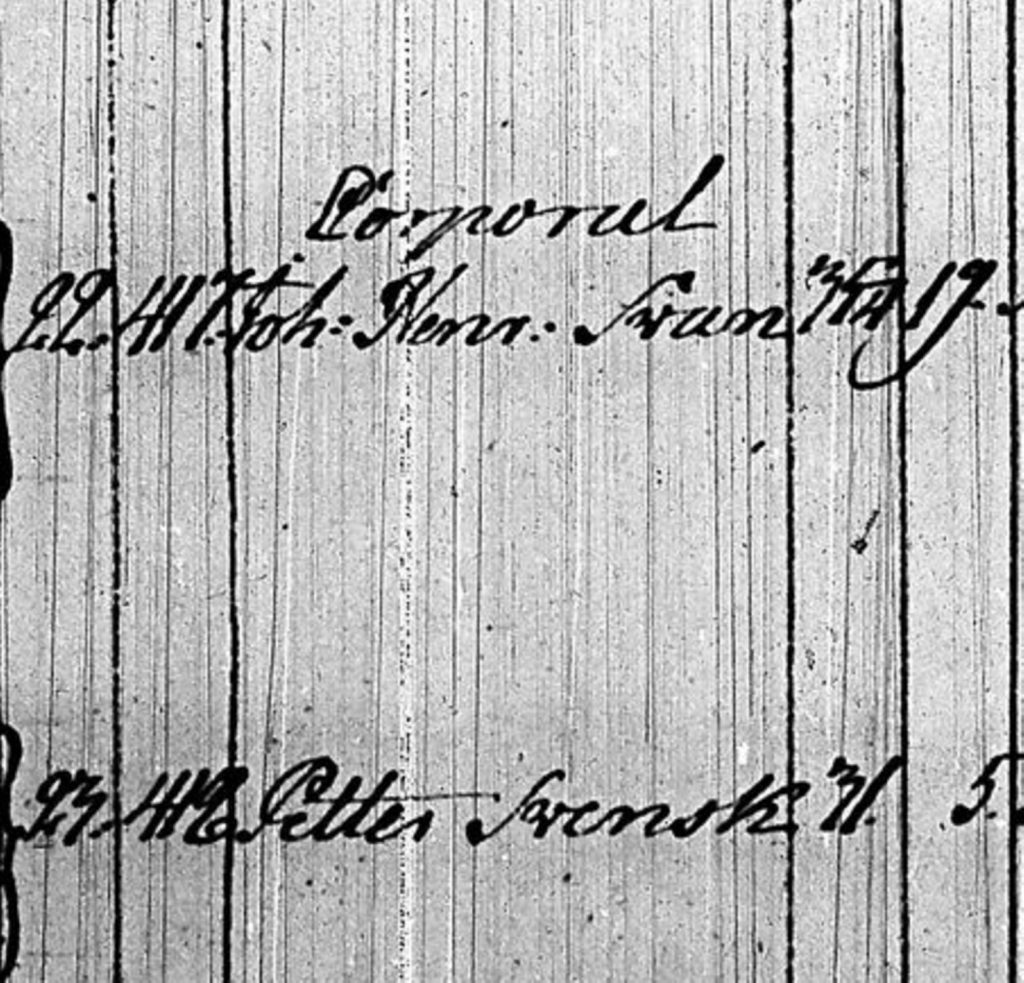 Corporal
22. 417. Joh: Henr: Svan 19.
23. 418 Petter Svensk 31. 5.